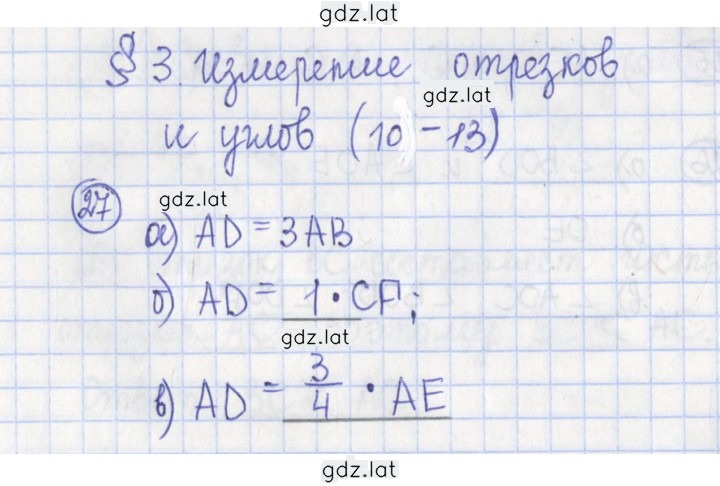 gdz.lat
§ 3. Измерение отрезков
gdz.lat
и углов (10 - 13)
gdz.lat
27
а) AD = 3AB
б) AD = 1 · CF;
gdz.lat
в) AD = 3/4 · AE
gdz.lat